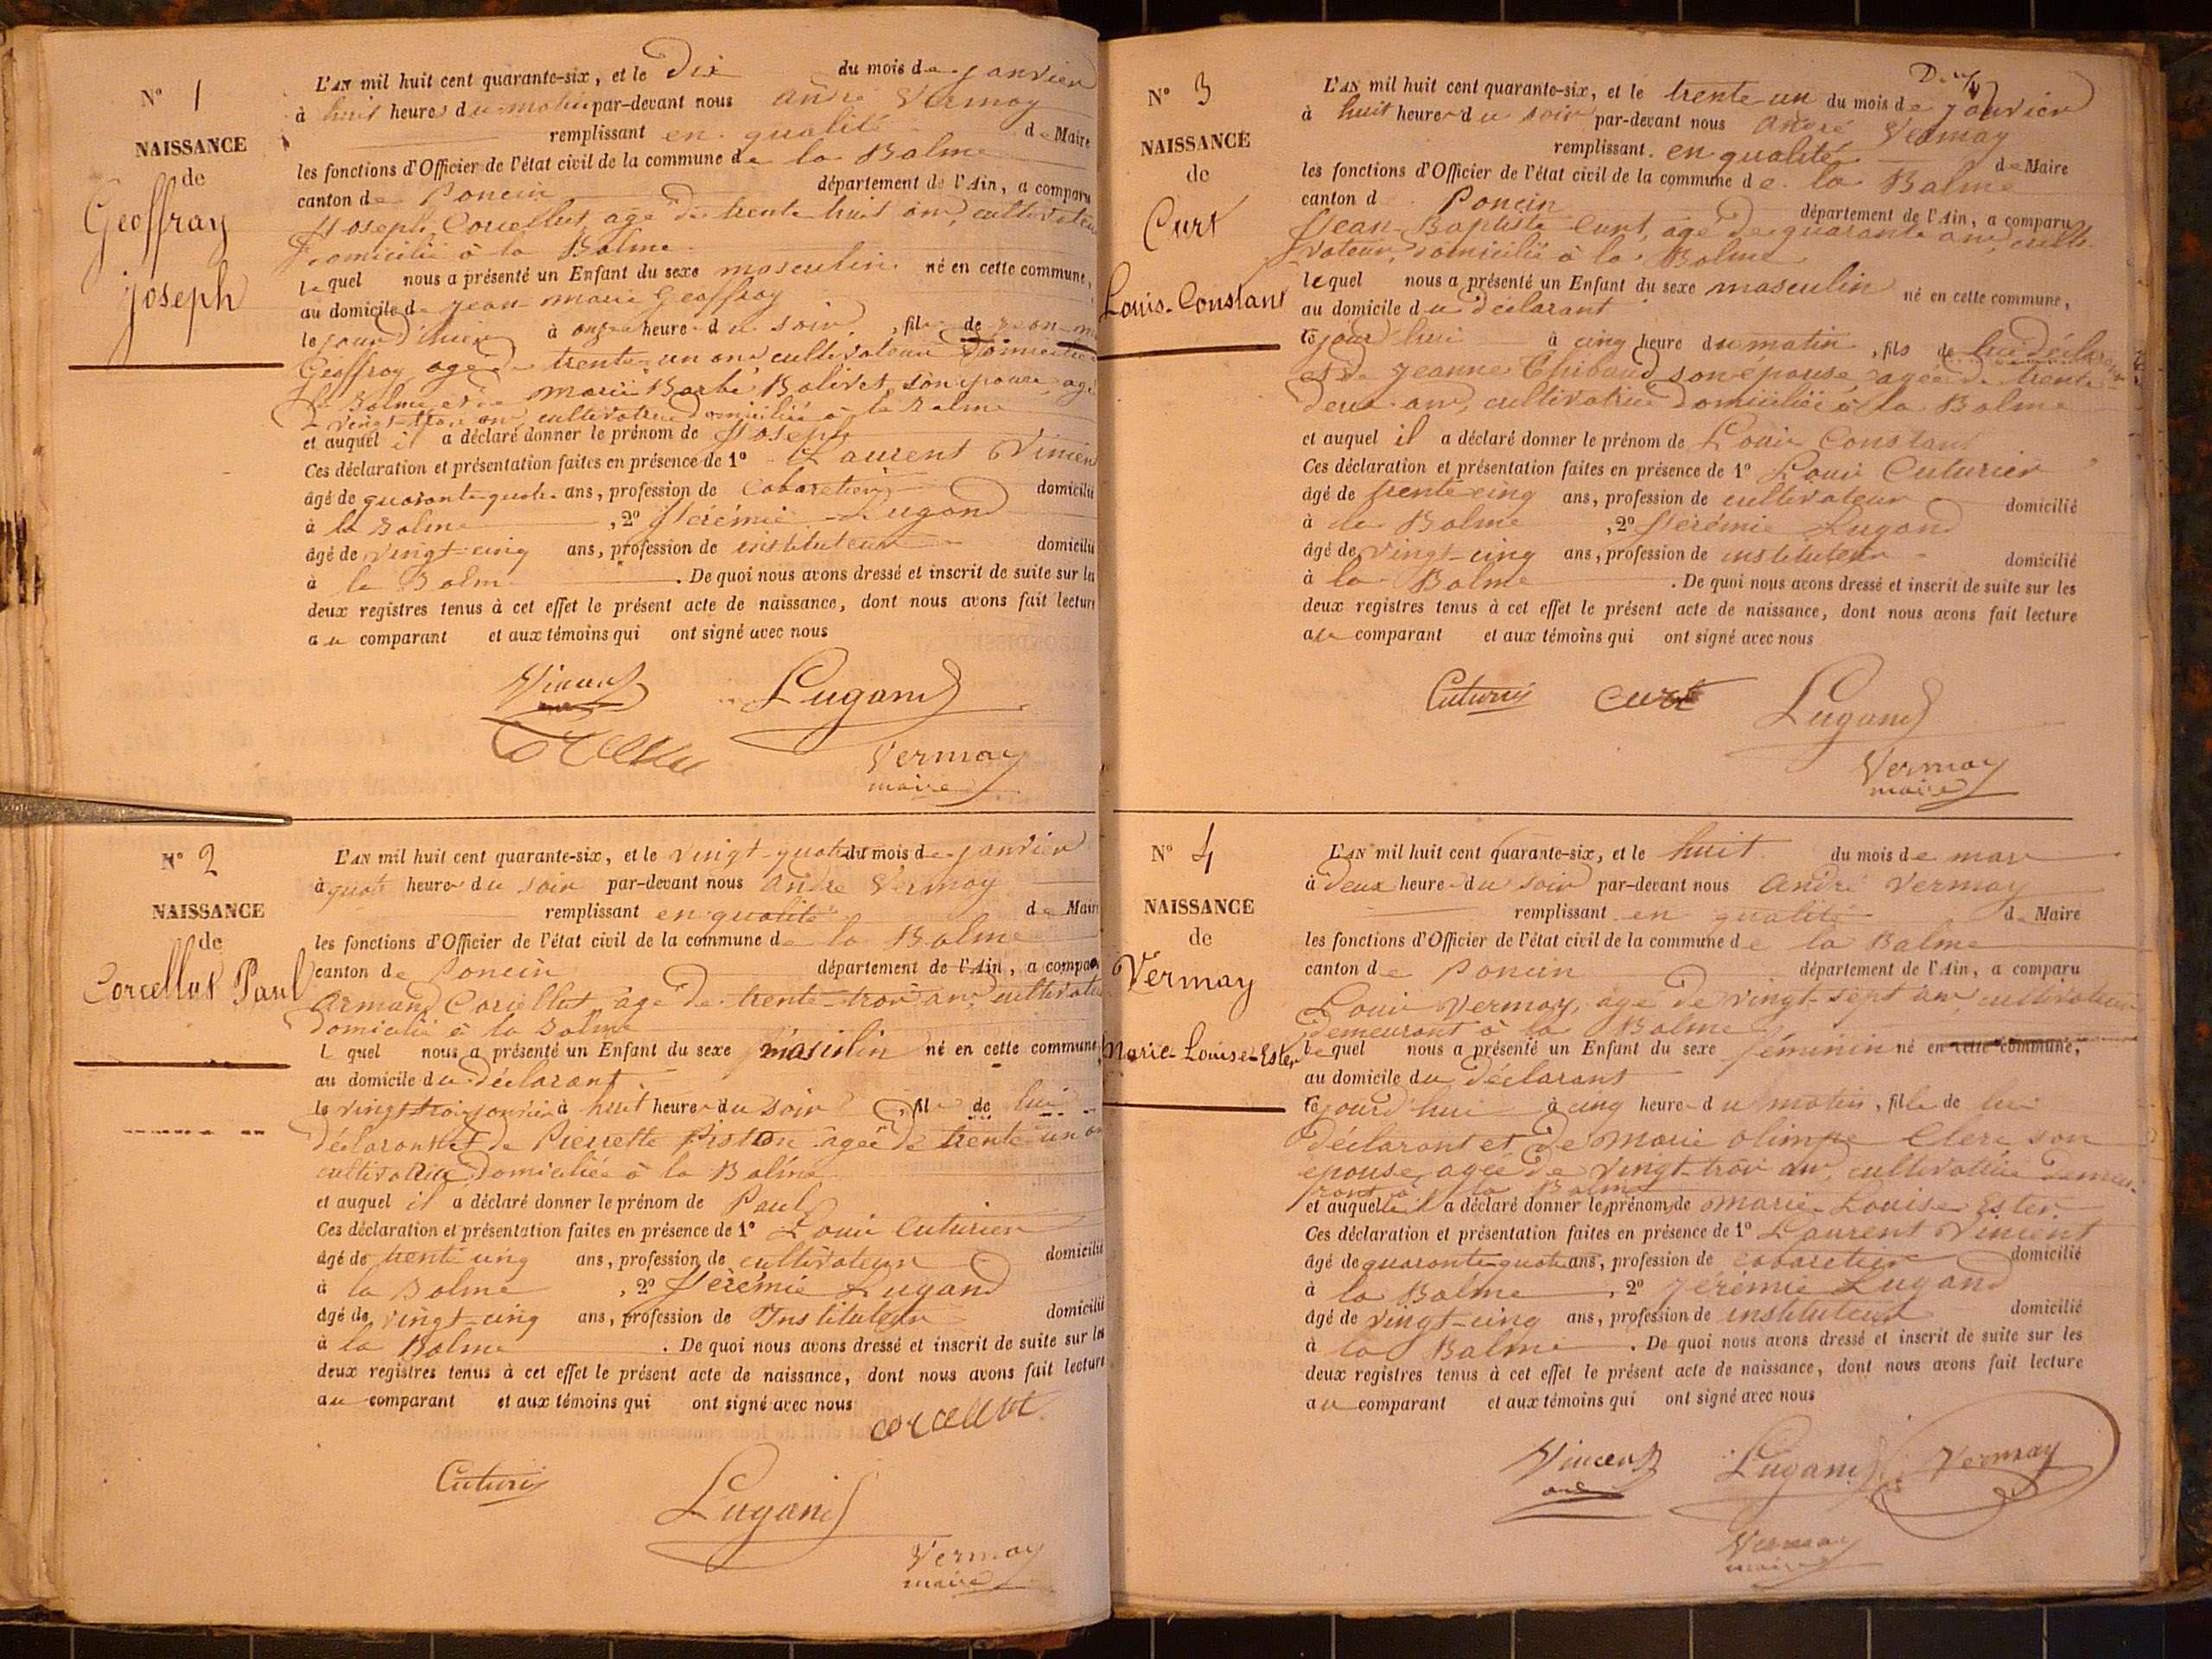 N° 1
NAISSANCE
de
Geoffray
joseph
L'AN mil huit cent quarante-six, et le Dix du mois de janvier
à huit heures du matin par-devant nous andré Vermay
remplissant en qualité de Maire
les fonctions d'Officier de l'état civil de la commune de la Balme
canton de Poncin département de l'Ain, a comparu
joseph Corcellut, âgé de trente huit ans, cultivateur
Domicilié à la Balme
lequel nous a présenté un Enfant du sexe masculin né en cette commune,
au domicile de jean marie Geoffray
le jour d'hier à onze heures du soir, fils de jean-ma
Geoffray agé de trente-un ans cultivateur Domicilié
la Balme et de marie Barbe Bolivet, son épouse, agé
de vingt-trois ans, cultivatrice Domiciliée à la Balme
et auquel il a déclaré donner le prénom de joseph
Ces déclaration et présentation faites en présence de 1° Laurent Vincent
âgé de quarante-quatre ans, profession de Cabaretier domicilié
à la Balme, 2° jérémie Lugand
âgé de vingt-cinq ans, profession de instituteur domicilié
à la Balme. De quoi nous avons dressé et inscrit de suite sur les
deux registres tenus à cet effet le présent acte de naissance, dont nous avons fait lecture
au comparant et aux témoins qui ont signé avec nous
Vincent Lugand
Vermay
maire
N° 2
NAISSANCE
de
Corcellut Paul
L'AN mil huit cent quarante-six, et le vingt-quatre du mois de janvier
à quatre heures du soir par-devant nous andré Vermay
remplissant en qualité de Maire
les fonctions d'Officier de l'état civil de la commune de la Balme
canton de Poncin département de l'Ain, a comparu
armand Corcellut, âgé de trente-trois ans, cultivateur
domicilié à la Balme
lequel nous a présenté un Enfant du sexe masculin né en cette commune,
au domicile du déclarant
le vingt trois janvier à huit heures du soir, fils de lui
déclarant et de Pierrette Piston agée de trente-un an
cultivatrice Domiciliée à la Balme
et auquel il a déclaré donner le prénom de Paul
Ces déclaration et présentation faites en présence de 1° Louis Cuturier
âgé de trente cinq ans, profession de cultivateur domicilié
à la Balme, 2° jérémie Lugand
âgé de vingt-cinq ans, profession de Instituteur domicilié
à la Balme. De quoi nous avons dressé et inscrit de suite sur les
deux registres tenus à cet effet le présent acte de naissance, dont nous avons fait lecture
au comparant et aux témoins qui ont signé avec nous
corcellut
Lugand
Vermay
maire
N° 3
NAISSANCE
de
Curt
Louis-Constant
L'AN mil huit cent quarante-six, et le trente-un du mois de janvier
à huit heures du soir par-devant nous andré Vermay
remplissant en qualité de Maire
les fonctions d'Officier de l'état civil de la commune de la Balme
canton d Poncin département de l'Ain, a comparu
jean-Baptiste Curt, âgé de quarante ans, culti-
vateur, domicilié à la Balme
lequel nous a présenté un Enfant du sexe masculin né en cette commune,
au domicile du déclarant
ce jour d'hui à cinq heure du matin, fils de lui déclarant
et de jeanne Thibaud son épouse, agée de trente
deux ans, cultivatrice domiciliée à la Balme
et auquel il a déclaré donner le prénom de Louis Constant
Ces déclaration et présentation faites en présence de 1° Louis Cuturier
âgé de trente cinq ans, profession de cultivateur domicilié
à la Balme, 2° jérémie Lugand
âgé de vingt-cinq ans, profession de instituteur domicilié
à la Balme. De quoi nous avons dressé et inscrit de suite sur les
deux registres tenus à cet effet le présent acte de naissance, dont nous avons fait lecture
au comparant et aux témoins qui ont signé avec nous
curt Lugand
Vermay
maire
N° 4
NAISSANCE
de
Vermay
Marie-Louise-Ester
L'AN mil huit cent quarante-six, et le huit du mois de mars
à deux heures du soir par-devant nous andré Vermay
remplissant en qualité de Maire
les fonctions d'Officier de l'état civil de la commune de la Balme
canton de Poncin département de l'Ain, a comparu
Louis Vermay, âgé de vingt-sept ans cultivateur
demeurant à la Balme
lequel nous a présenté un Enfant du sexe féminin né en cette commune,
au domicile du déclarant
ce jourd'hui à cinq heures du matin, fille de lui
déclarant et de marie olimpe Clerc son
épouse, agée de vingt-trois ans, cultivatrice demeu-
rant à la Balme
et auquelle il a déclaré donner le prénom de marie-Louise Ester
Ces déclaration et présentation faites en présence de 1° Laurent Vincent
âgé de quarante-quatre ans, profession de cabaretier domicilié
à la Balme, 2° jérémie Lugand
âgé de vingt-cinq ans, profession de instituteur domicilié
à la Balme. De quoi nous avons dressé et inscrit de suite sur les
deux registres tenus à cet effet le présent acte de naissance, dont nous avons fait lecture
au comparant et aux témoins qui ont signé avec nous
Vincent Lugand Vermay
Vermay
maire